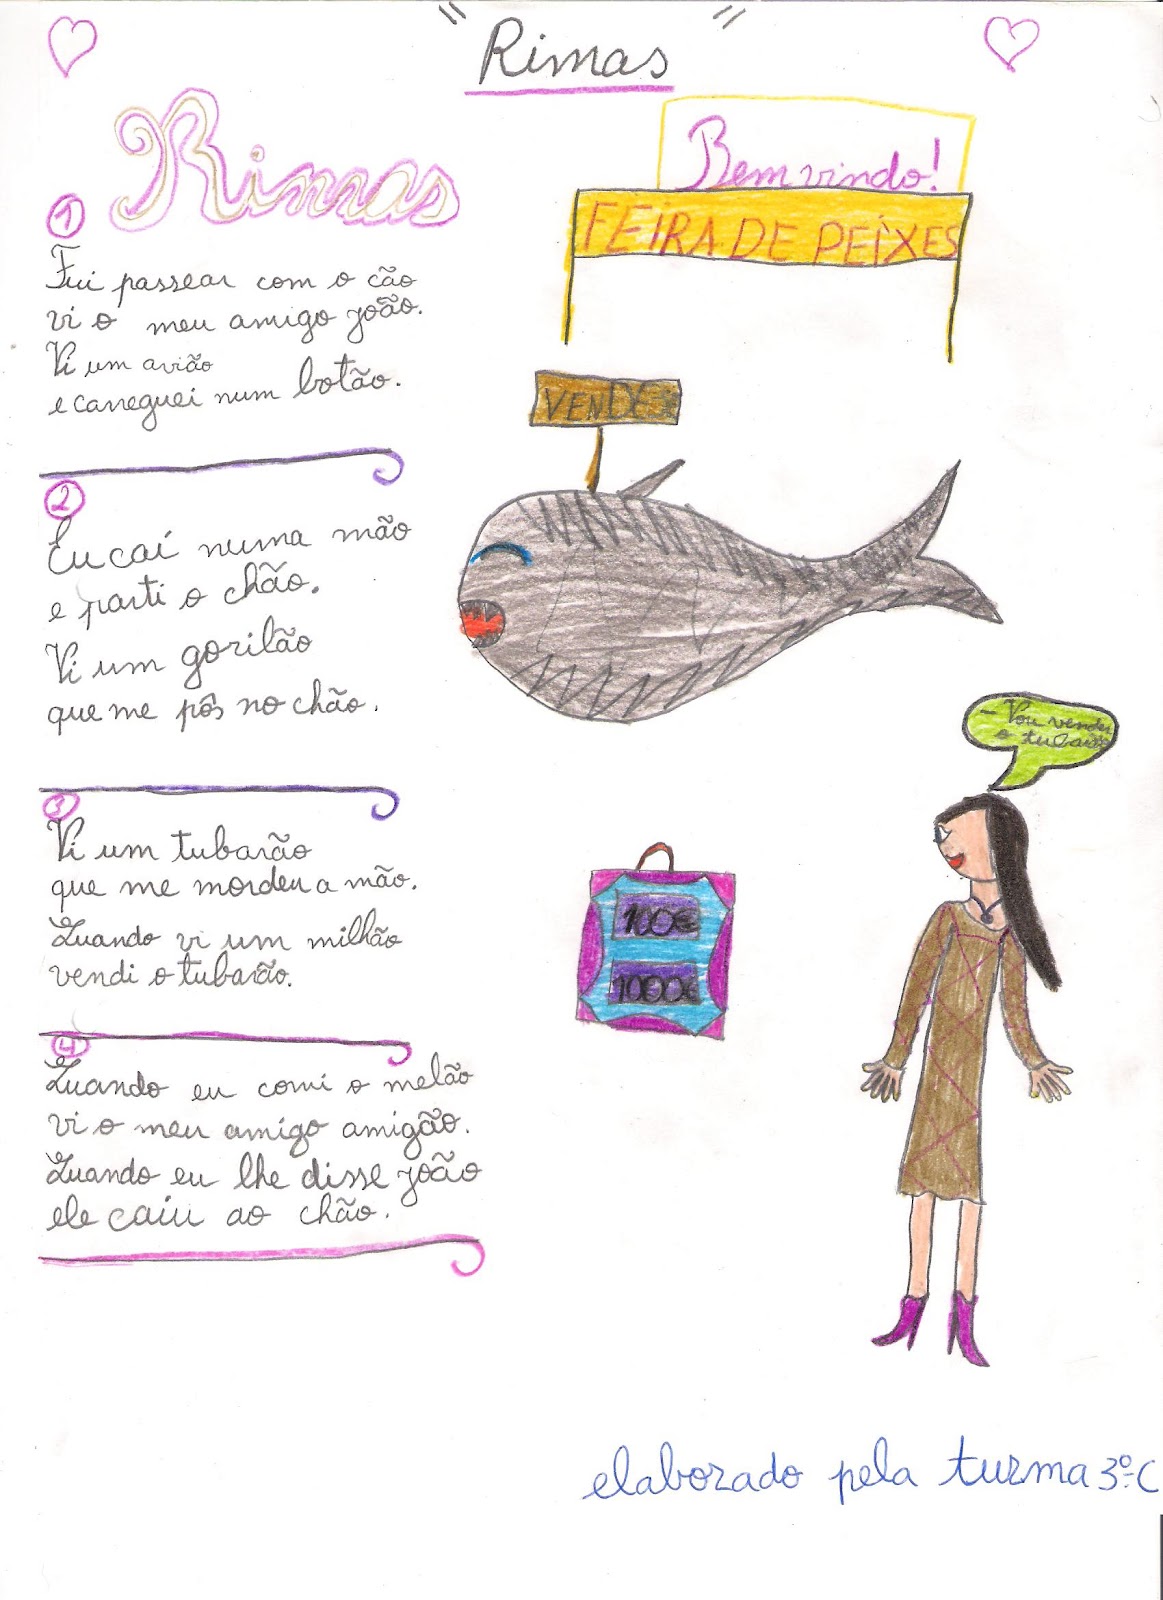 " Rimas "
Rimas
1
Fui passear com o cão
vi o meu amigo joão.
Vi um avião
e carreguei num botão.
2
Eu caí numa mão
e parti o chão.
Vi um gorilão
que me pôs no chão.
3
Vi um tubarão
que me mordeu a mão.
Quando vi um milhão
vendi o tubarão.
4
Quando eu comi o melão
vi o meu amigo amigão.
Quando eu lhe disse joão
ele caiu ao chão.
Bem vindo!
FEIRA DE PEIXES
VENDE-SE
- Vou vender
o tubarão
100€
1000€
elaborado pela turma 3º-C